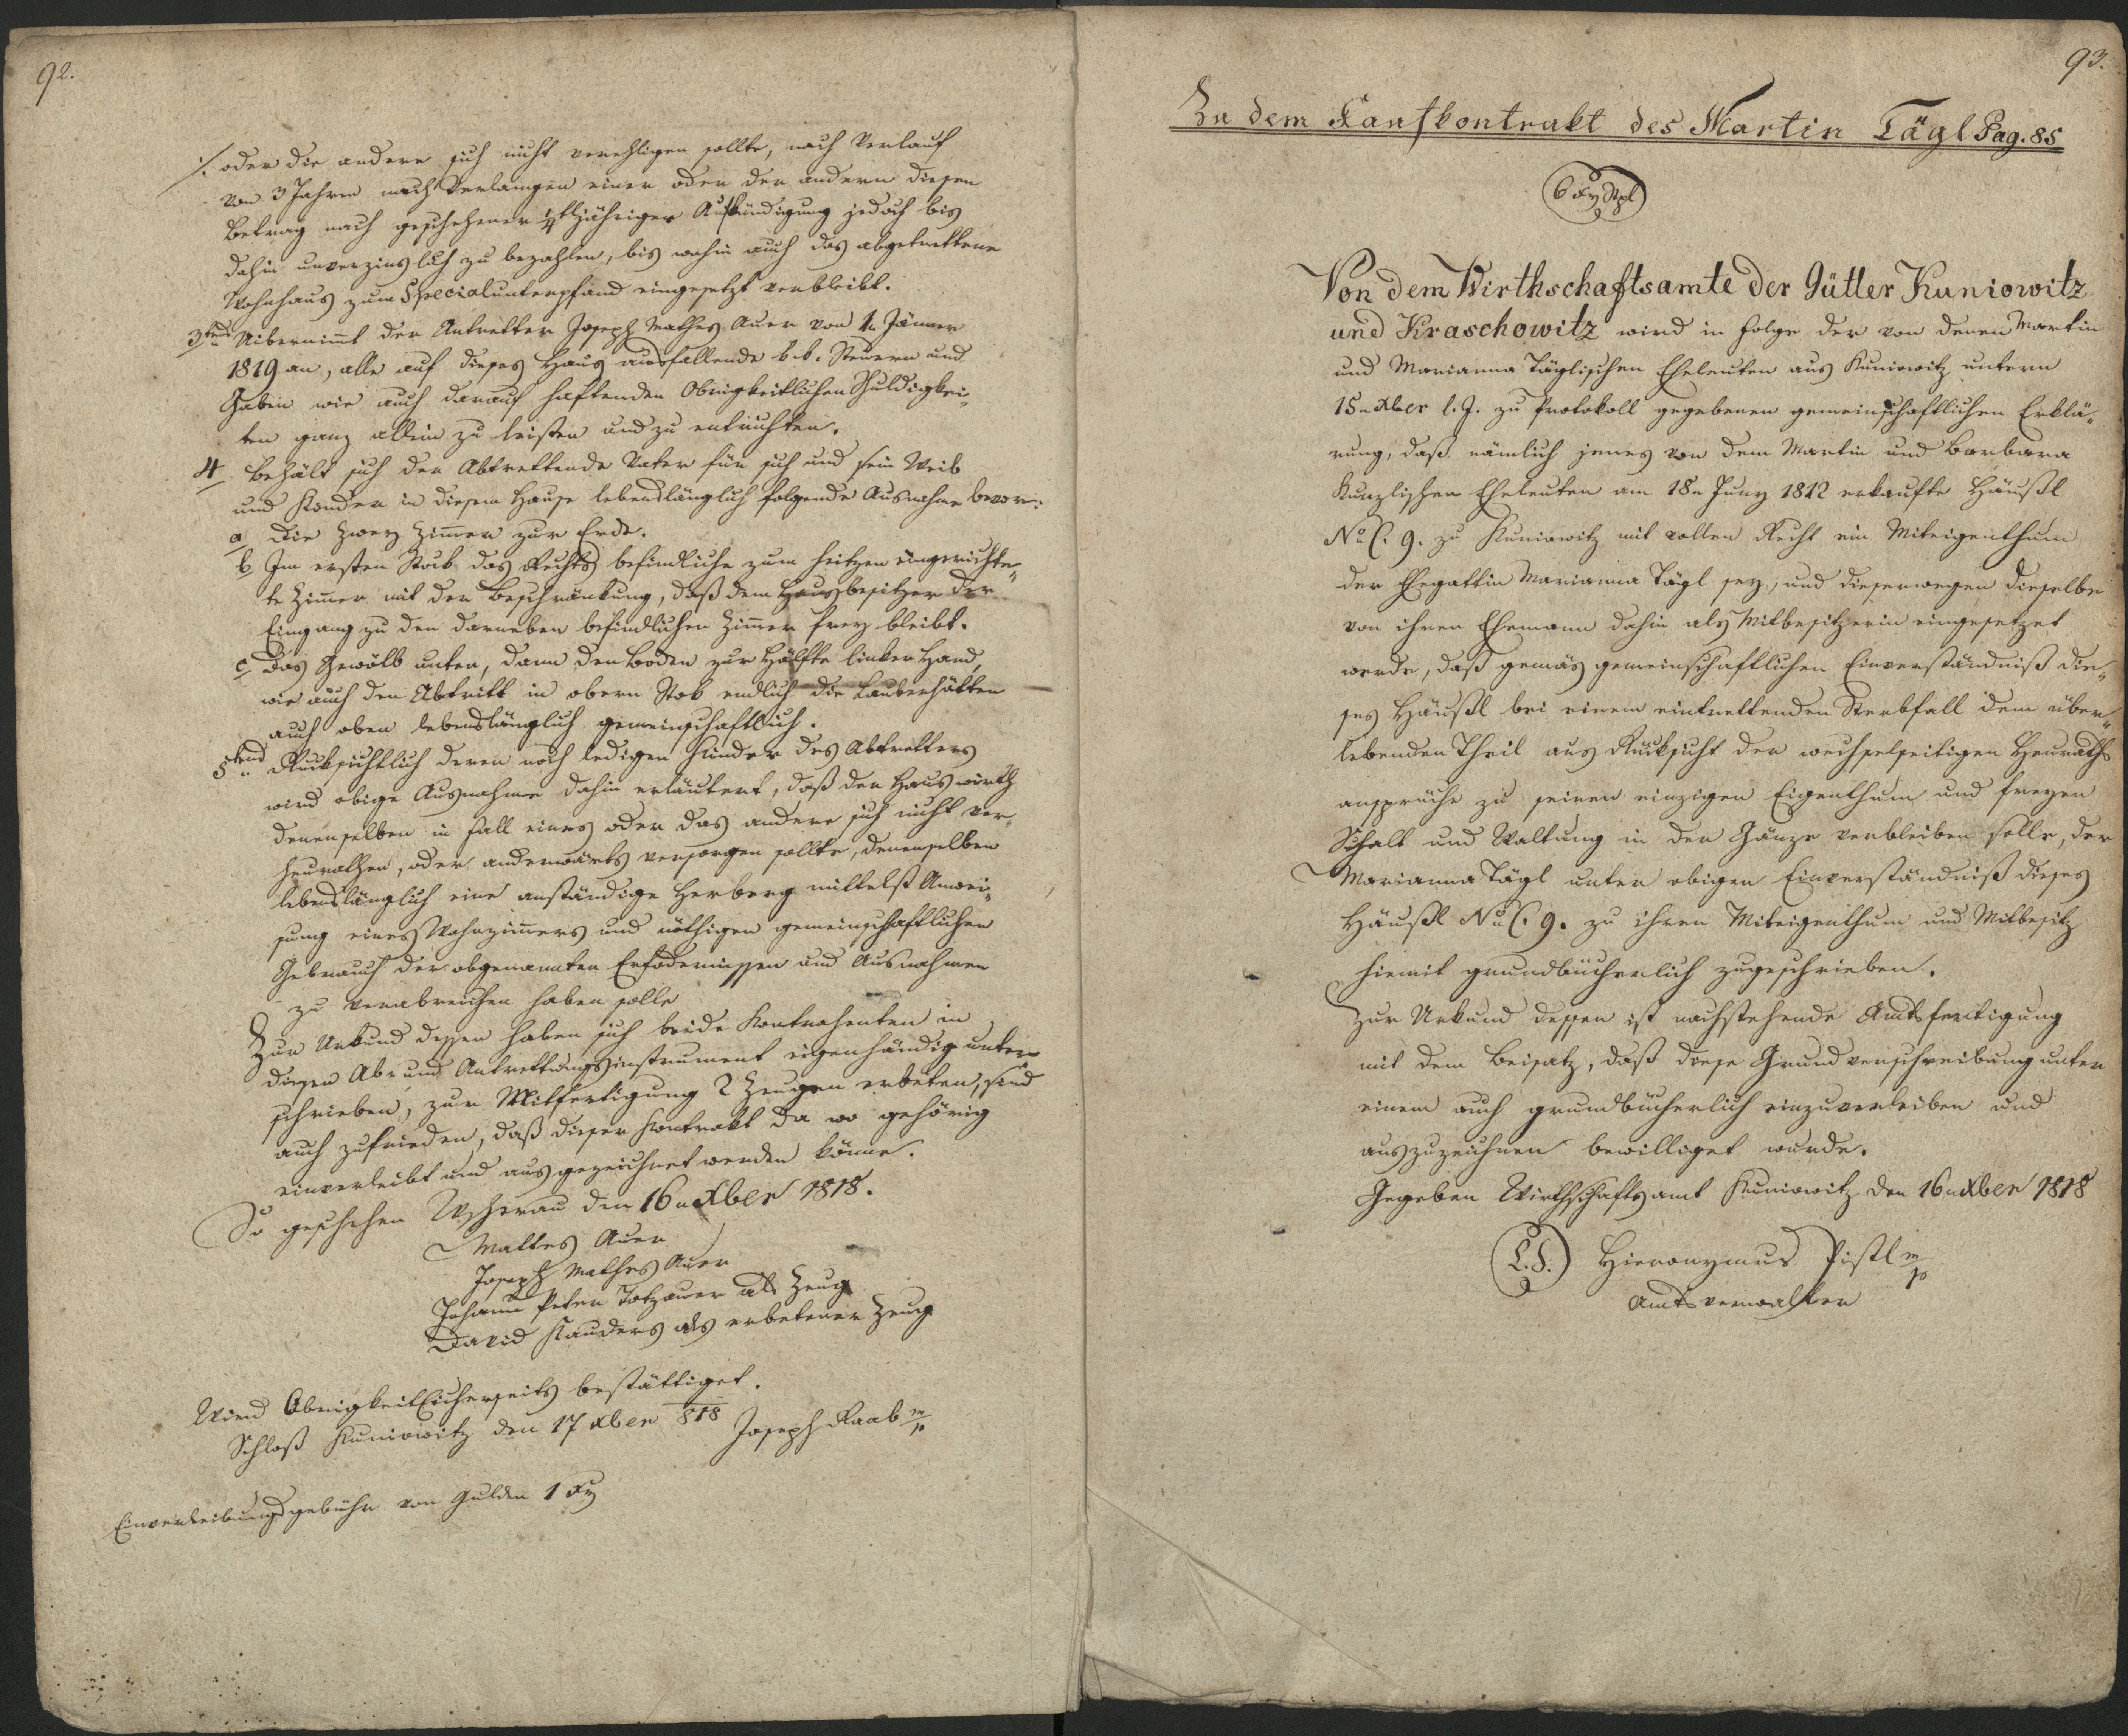 92.
./. oder die andere sich nicht verehligen sollte, nach Verlauf
von 3 Jahren nach Verlangen einer oder der andern diesen
Betrag nach geschehener ¼tljähriger Aufkündigung jedoch bis
dahin unverzinslich zu bezahlen, bis wohin auch das abgetrettene
Wohnhaus zum Specialunterpfand eingesetzt verbleibt.
3tens Uibernimt der Antretter Joseph Mathes Auer von 1n Jänner
1819 an, alle auf dieses Haus ausfallende k.k. Steuern und
Gaben wie auch darauf haftenden Obrigkeitlichen Schuldigkei„
ten ganz allein zu leisten und zu entrichten.
4 Behält sich der Abtrettende Vater für sich und sein Weib
und Kinder in diesem Hause lebenslänglich folgende Ausnahm bevor:
a Die zwey Zimer zur Erde.
b Im ersten Stock das Rechts befindliche zum heitzen eingerichte„
te Zimer mit der Beschränkung, daß dem Hausbesitzer der
Eingang zu den darneben befindlichen Zimer frey bleibt.
c Das Gewölb unten, dann den Boden zur Hälfte linker Hand,
wie auch den Abtritt in obern Stok endlich die Lauberhütten
auch oben lebenslänglich gemeinschaftlich.
5tens Rücksichtlich deren noch ledigen Kinder des Abtretters
wird obige Ausnahme dahin erläutert, daß der Hauswirth
denenselben in Fall eines oder das andere sich nicht ver„
heurathen, oder anderwärts versorgen sollte, denenselben
lebenslänglich eine anständige Herberg mittelst Anwei„
sung eines Wohnzimmers und nöthigen gemeinschaftlichen
Gebrauch der obgenannten Erfodernissen und Ausnahmen
zu verabreichen haben solle
Zur Urkund dessen haben sich beide Kontrahenten in
diesen Ab= und Antrettungsinstrument eigenhändig unter
schrieben, zur Mitfertigung 2 Zeugen erbeten, sind
auch zufrieden, daß dieser Kontrakt da wo gehörig
einverleibt und ausgezeichnet werden könne.
So geschehen Wscherau den 16n Xber 1818.
Mattes Auer
Joseph Mathes Auer
Johann Peter Totzauer als Zeug
David Kauders als erbetener Zeug
Wird Obrigkeitlicherseits bestättiget.
Schloß Kuniowitz den 17 Xber 818 Joseph Raab m/p
Einverleibungsgebühr von Gulden 1 Xr
93.
Zu dem Kaufkontrakt des Martin Tägl Pag. 85
6 Xr Stpl
Von dem Wirthschaftsamte der Gütter Kuniowitz
und Kraschowitz wird in Folge der von denen Martin
und Marianna Täglischen Eheleuten aus Kuniowitz untern
15n Xber l. J. zu Protokoll gegebenen gemeinschaftlichen Erklä„
rung, daß nämlich jenes von dem Martin und Barbara
Kunzlischen Eheleuten am 18n Juny 1812 erkaufte Häußl
No C. 9. zu Kuniowitz mit vollen Recht ein Miteigenthum
der Ehegattin Marianna Tägl sey, und dieserwegen dieselbe
von ihren Ehemann dahin als Mitbesitzerin eingesetzet
werde, daß gemäs gemeinschaftlichen Einverständniß die„
ses Häußl bei einem eintrettenden Sterbfall dem über„
lebenden Theil aus Rücksicht der wechselseitigen Heuraths
ansprüche zu seinen einzigen Eigenthum und freyen
Schalt und Waltung in der Gänze verbleiben solle, der
Marianna Tägl unter obigen Einverständniß dieses
Häußl No C. 9. zu ihren Miteigenthum und Mitbesitz
hiemit grundbücherlich zugeschrieben.
Zur Urkund dessen ist nachstehende Amtsfertigung
mit dem Beisatz, daß diese Grundverschreibung unter
einem auch grundbücherlich einzuverleiben und
auszuzeichnen bewilliget wurde.
Gegeben Wirthschaftsamt Kuniowitz den 16n Xber 1818
L.S. Hieronymus Pistl m/p
Amtsverwalter